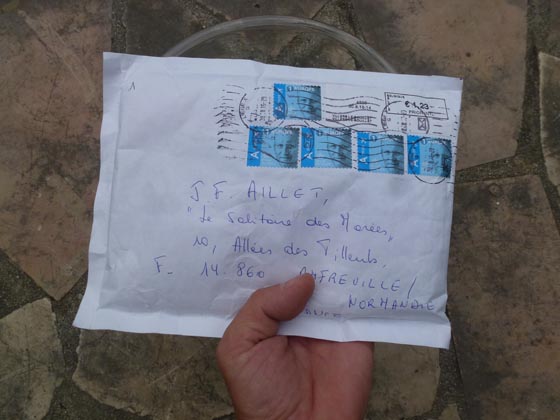 1
€ 4,23
J F. AILLET,
"Le Solitaire des Marées,
10, Allées des Tilleuls,
F. 14.860 AMFREVILLE /
NORMANDIE